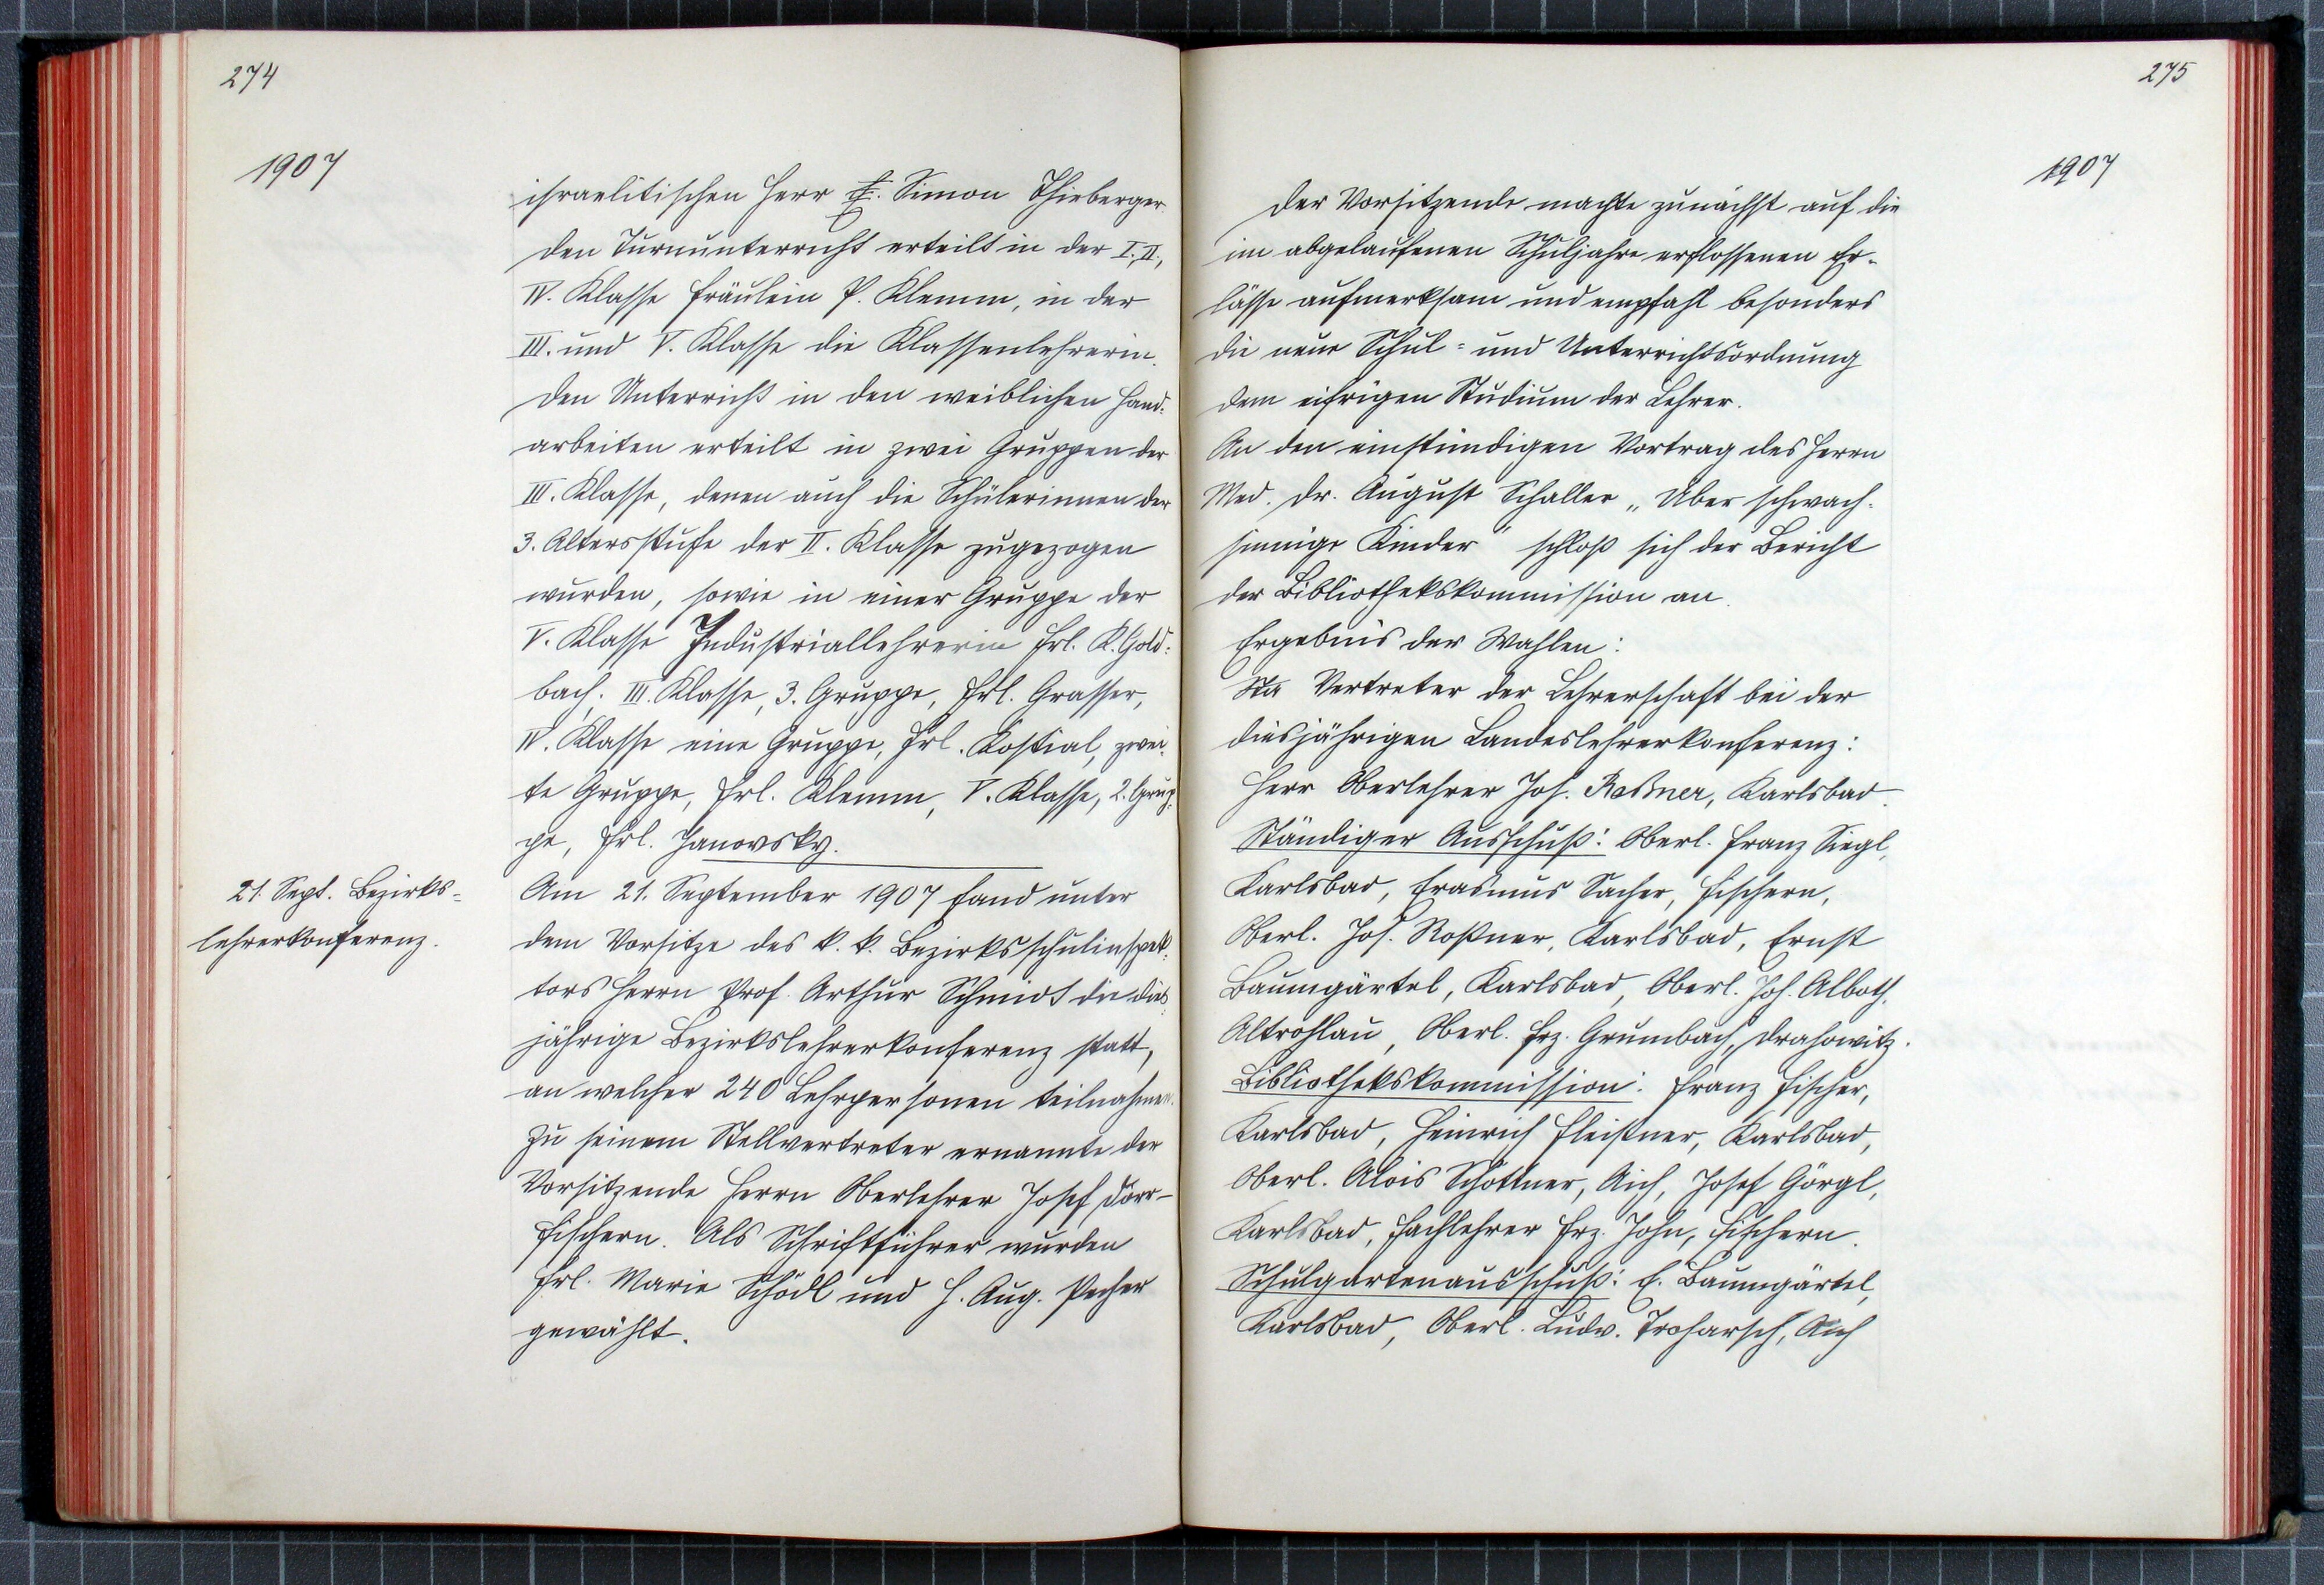 274
1907
israelitischen Herr E. Simon Thieberger.
Den Turnunterricht erteilt in der I., II.,
IV. Klasse Fräulein P. Klemm, in der
III. und V. Klasse die Klassenlehrerin.
Den Unterricht in den weiblichen Hand-
arbeiten erteilt in zwei Gruppen der
III. Klasse, denen auch die Schülerinnen der
3. Altersstufe der II. Klasse zugezogen
wurden, sowie in einer Gruppe der
V. Klasse Industriallehrerin Frl. K. Gold-
bach. III. Klasse, 3. Gruppe, Frl. Grasser,
IV. Klasse eine Gruppe, Frl. Kostial, zwei-
te Gruppe, Frl. Klemm, V. Klasse, 2. Grup-
pe, Frl. Janovsky.
21. Sept. Bezirks-
lehrerkonferenz.
Am 21. September 1907 fand unter
dem Vorsitze des k. k. Bezirksschulinspek-
tors Herrn Prof. Arthur Schmidt die dies-
jährige Bezirkslehrerkonferenz statt,
an welcher 240 Lehrpersonen teilnahmen.
Zu seinem Stellvertreter ernannte der
Vorsitzende Herrn Oberlehrer Josef Dörr-
Fischern. Als Schriftführer wurden
Frl. Marie Schödl und H. Aug. Pecher
gewählt.
275
1907
Der Vorsitzende machte zunächst auf die
im abgelaufenen Schuljahre erflossenen Er-
lässe aufmerksam und empfahl besonders
die neue Schul- und Unterrichtsordnung
dem eifrigen Studium der Lehrer.
An den einstündigen Vortrag des Herrn
Med. Dr. August Schaller „Über schwach-
sinnige Kinder" schloß sich der Bericht
der Bibliothekskommission an.
Ergebnis der Wahlen:
Vertreter der Lehrerschaft bei der
diesjährigen Landeslehrerkonferenz:
Herr Oberlehrer Jos. Roßner, Karlsbad.
Ständiger Ausschuß: Oberl. Franz Siegl,
Karlsbad, Erasmus Sacher, Fischern,
Oberl. Jos. Roßner, Karlsbad, Ernst
Baumgärtel, Karlsbad, Oberl. Joh. Alboth,
Altrohlau, Oberl. Frz. Grumbach, Drahowitz.
Bibliothekskommission: Franz Fischer,
Karlsbad, Heinrich Fleißner, Karlsbad,
Oberl. Alois Schottner, Aich, Josef Görgl,
Karlsbad, Fachlehrer Frz. John, Fischern.
Schulgartenausschuß: E. Baumgärtel,
Karlsbad, Oberl. Ludw. Troharsch, Aich